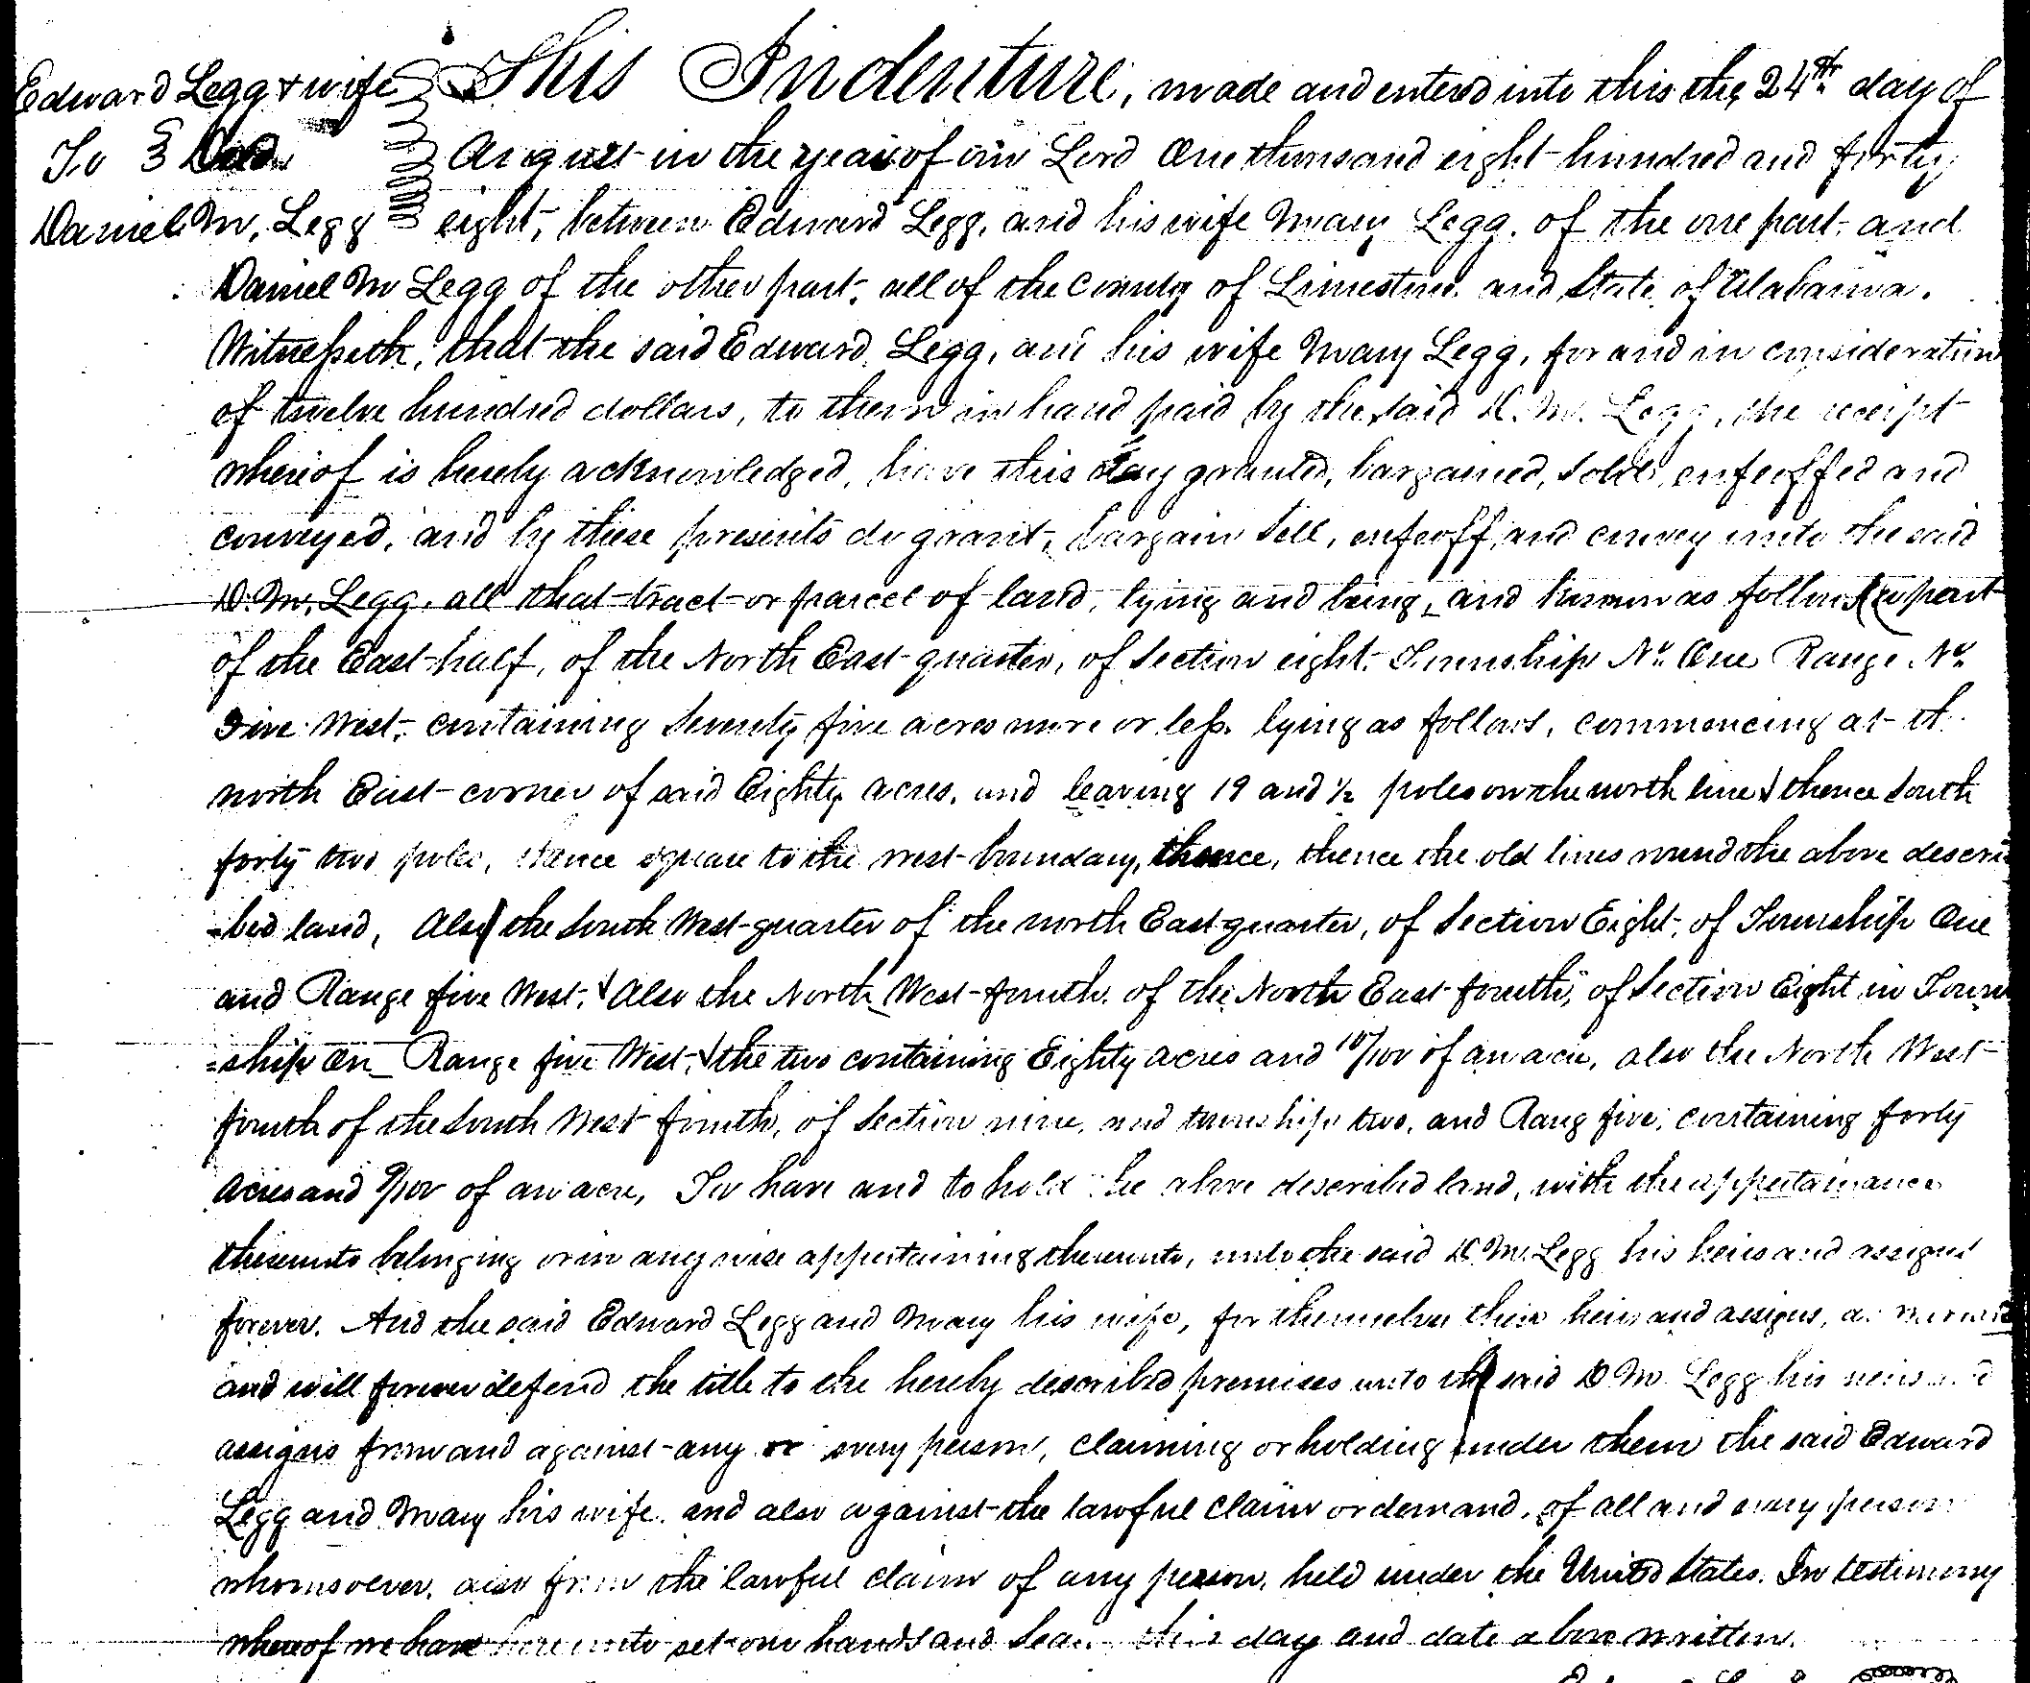 Edward Legg & wife
To } Deed
Daniel M. Legg
This Indenture, made and entered into this the 24th day of
August in the year of our Lord One thousand eight hundred and forty
eight, between Edward Legg, and his wife Mary Legg, of the one part, and
Daniel M Legg of the other part, all of the County of Limestone and State of Alabama.
Witnesseth, that the said Edward Legg, and his wife Mary Legg, for and in consideration
of twelve hundred dollars, to them in hand paid by the said D. M. Legg, the receipt
whereof is hereby acknowledged, have this day granted, bargained, sold, enfeoffed and
conveyed, and by these presents do grant, bargain sell, enfeoff, and convey unto the said
D. M. Legg, all that tract or parcel of land, lying and being, and known as follows, (a part
of the East half, of the North East quarter, of Section eight, Township No. One Range No.
Five West, containing Seventy five acres more or less lying as follows, commencing at th
north East corner of said Eighty acres, and leaving 19 and ½ poles on the north line & thence South
forty two poles, thence square to the west boundary, thence, thence the old lines round the above descri
-bed land, Also the South West quarter of the north East quarter, of Section Eight, of Township One
and Range five West, & Also the North West fourth of the North East fourth, of Section Eight in Town
=ship On_ Range five West, & the two containing Eighty acres and 10/100 of an acre, also the North West
fourth of the South West fourth, of Section nine, and township two, and Rang five, containing forty
Acres and 9/100 of an acre, To have and to hold the above described land, with the appertainance
thereunto belonging or in any wise appertaining thereunto, unto the said D. M. Legg his heirs and assigns
forever. And the said Edward Legg and Mary his wife, for themselves their heirs and assigns, do warrant
and will forever defend the title to the hereby described premises unto the said D M Legg his heirs and
assigns from and against any or every person, claiming or holding under them the said Edward
Legg and Mary his wife, and also against the lawful claim or demand, of all and every person
whomsoever, also from the lawful claim of any person, held under the United States. In testimony
whereof we have hereunto set our hands and seals this day and date above written.